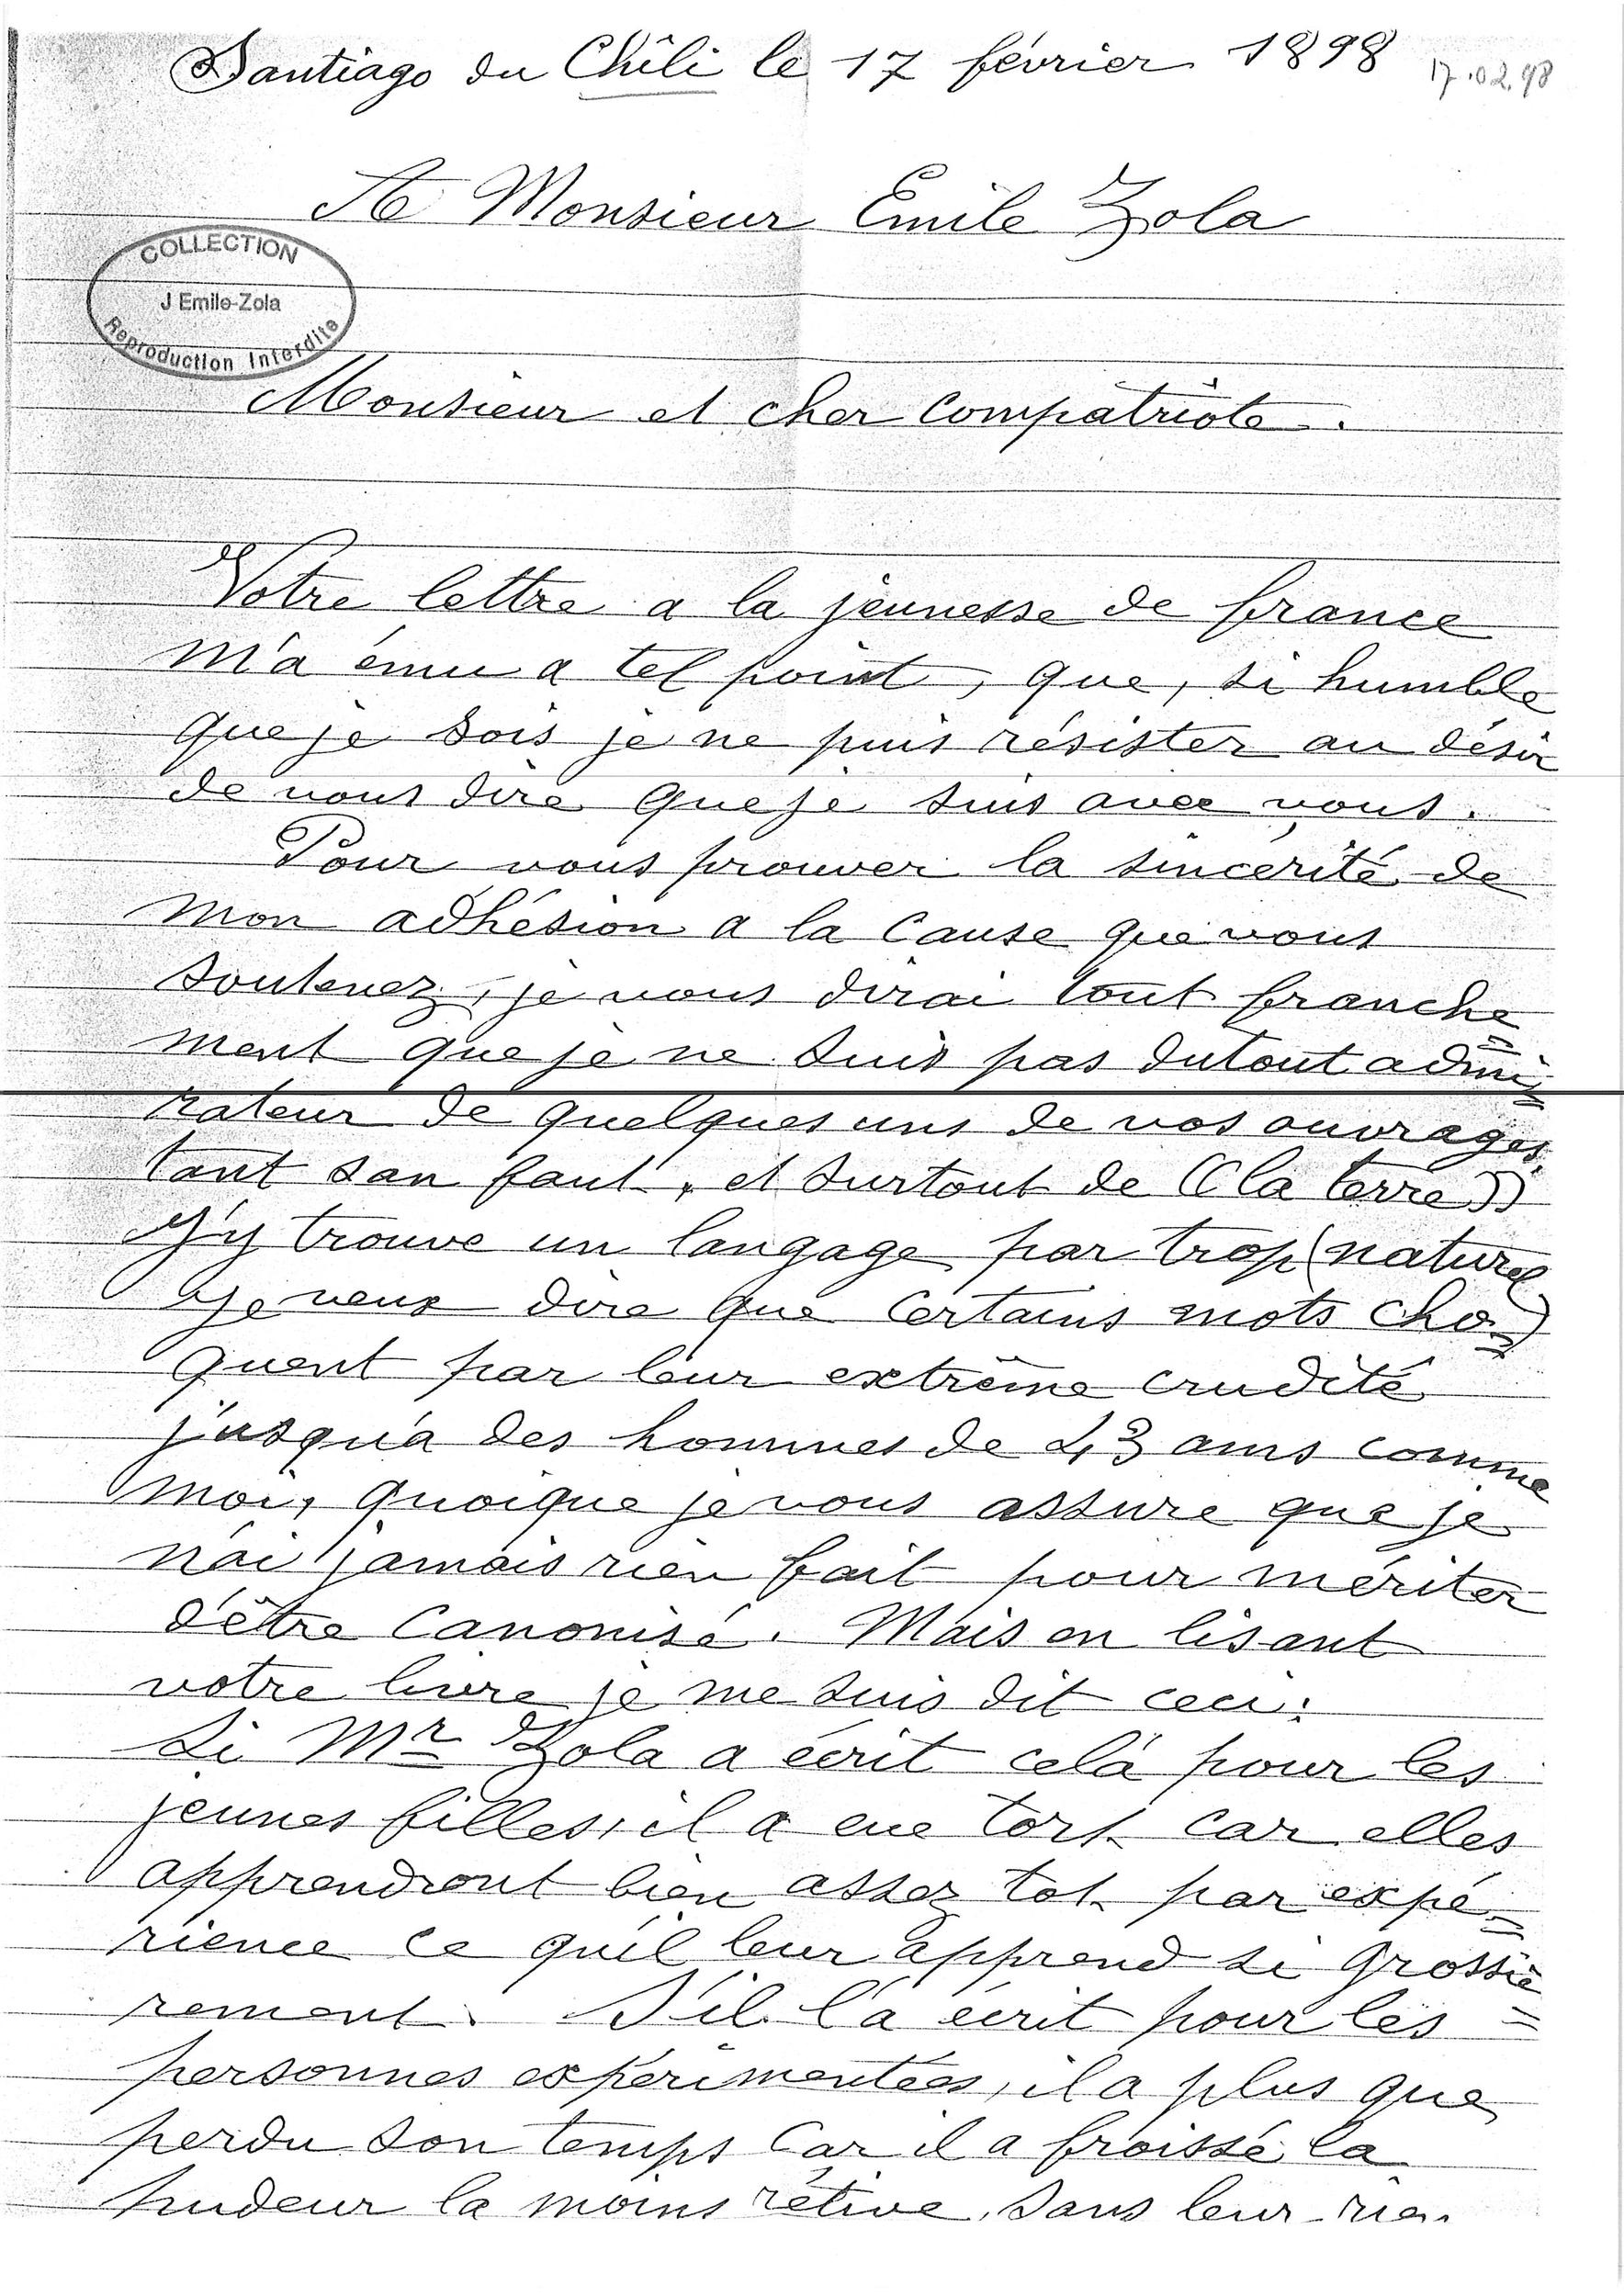 Santiago du Chili le 17 février 1898
17.02.98
A Monsieur Emile Zola
COLLECTION
J Emile-Zola
Reproduction Interdite
Monsieur et cher compatriote.
Votre lettre a la jeunesse de france
m'a ému a tel point, que, si humble
que je sois je ne puis résister au désir
de vous dire que je suis avec vous.
Pour vous prouver la sincérité de
mon adhésion a la cause que vous
soutenez, je vous dirai tout franche
ment que je ne suis pas dutout admi=
rateur de quelques uns de vos ouvrages
tant san faut, et surtout de ((la terre))
J'y trouve un langage par trop (naturel
je veux dire que certains mots cho=)
quent par leur extrême crudité
jusqu'a des hommes de 43 ans comme
moi, quoique je vous assure que je
n'ai jamais rien fait pour mériter
d'être canonisé. Mais en lisant
votre livre je me suis dit ceci:
Si Mr Zola a écrit celà pour les
jeunes filles, il a eue tort car elles
apprendront bien assez tot par expé=
rience ce qu'il leur apprend si grossiè
rement. S'il l'a écrit pour les =
personnes expérimentées, il a plus que
perdu son temps car il a froissé la
pudeur la moins rétive, sans leur rien